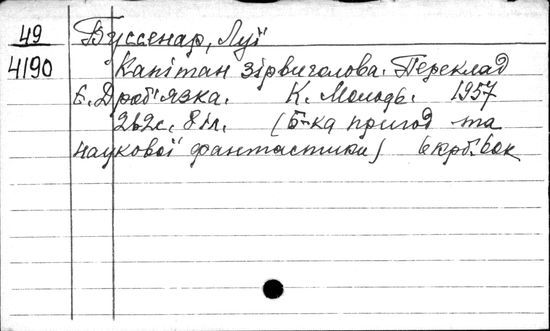 49
4190
Буссенар, Луї
Капітан зірвиголова. Переклад
Є. Дроб'язка. К. Молодь. 1957
262с. 8 іл. (Б-ка пригод та
наукової фантастики) 6крб.60к